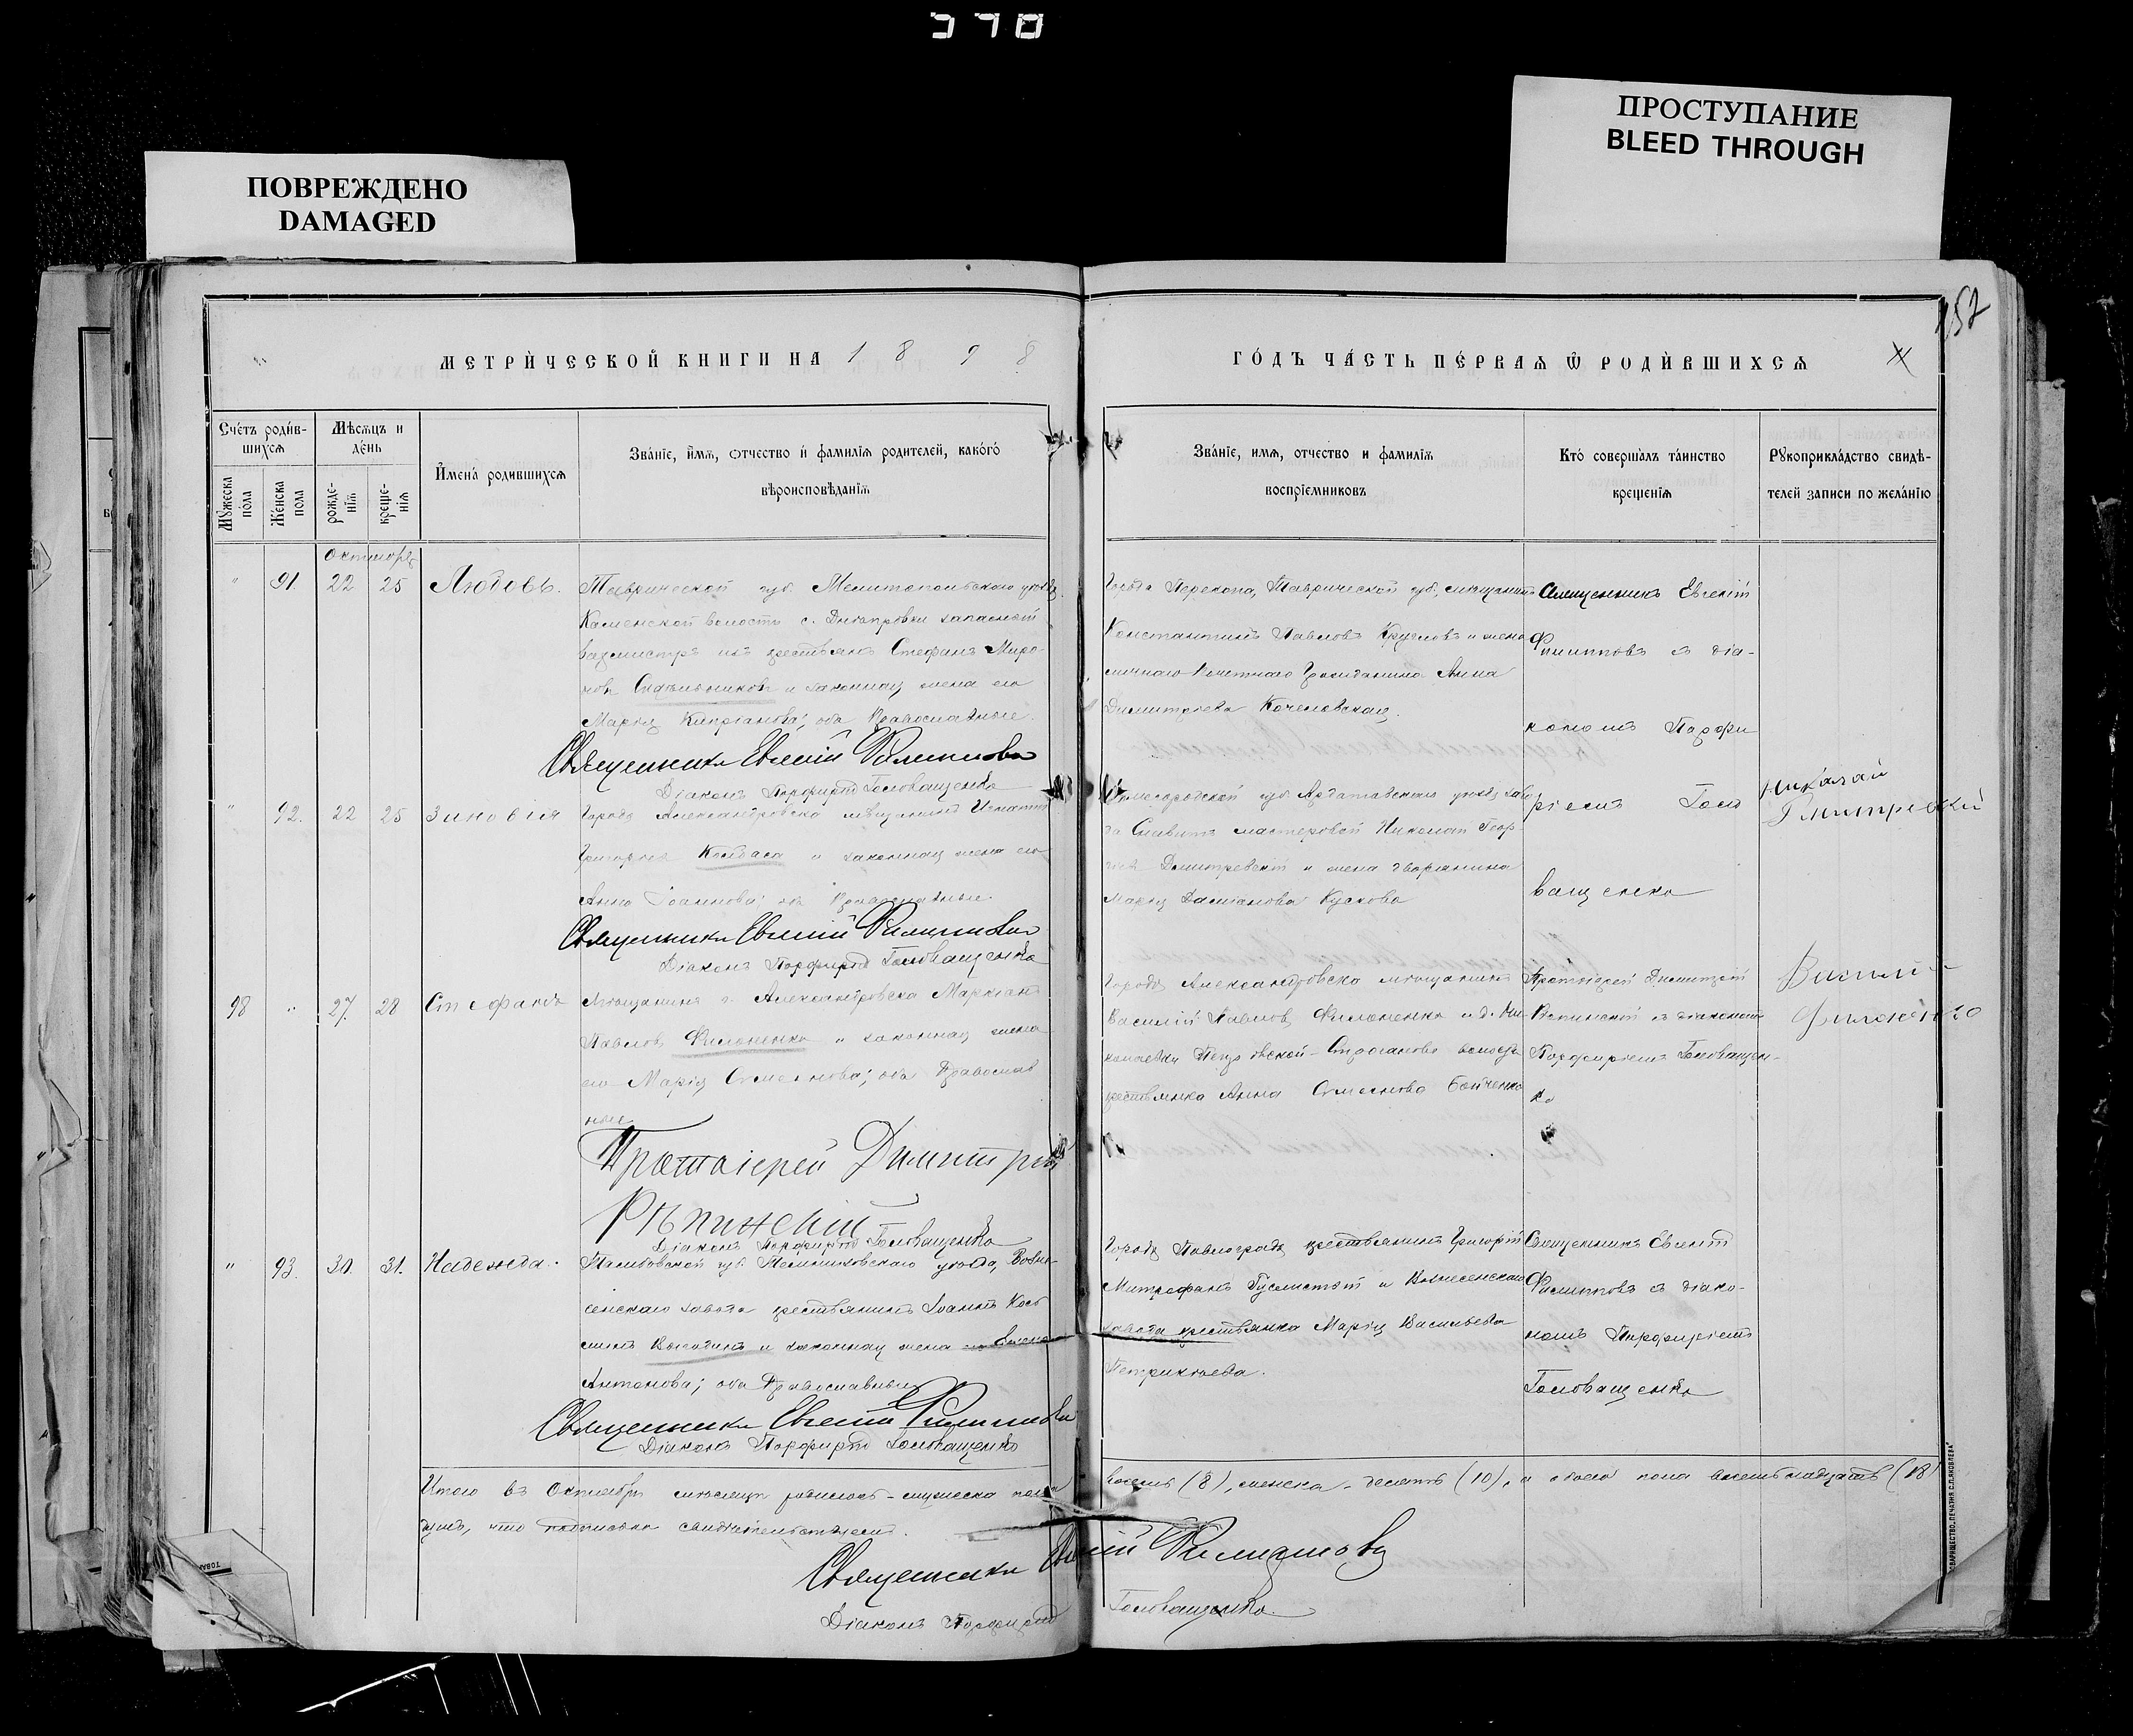 378
ПРОСТУПАНИЕ
BLEED THROUGH
ПОВРЕЖДЕНО
DAMAGED
152
МЕТРИ́ЧЕСКОЙ КНИГИ НА 1898
ГО́ДЪ ЧА́СТЬ ПЕ́РВАѦ Ѡ РОДИ́ВШИХСѦ
Сче́тъ роди́в-
шихсѧ
Мѣсѧцъ и
де́нь
Мꙋжеска
по́ла
Же́нска
пола
рожде-
нїѧ
креще-
нїѧ
И́мена́ родившихсѧ
Зва́нїе, и́мѧ, отчество и́ фамилїѧ родителей, како́го
вѣроисповѣданїѧ
Зва́нїе, имѧ, отчество и фамилїѧ
воспрїемниковъ
Кто́ совершалъ та́инство
крещенїѧ
Рꙋкоприкла́дство свидѣ-
телей записи по жела́нїю
Октября
" 91. 22 25 Любовь.
Таврической губ. Мелитопольскаго уѣзда
Каменской волости с. Днѣпровки запасный
вахмистръ изъ крестьянъ Стефанъ Миро-
новъ и законная жена его
Марія Кипріанова; оба Православные.
Священникъ Евгеній Филипповъ
Діаконъ Порфирій Головащенко
Города Перекопа, Таврической губ., мѣщанинъ
Константинъ Павловъ Кругловъ и жена
личнаго Почетнаго Гражданина Анна
Димитріева Кочемовская.
Священникъ Евгеній
Филипповъ съ діа-
кономъ Порфи
ріемъ Голо
ващенко
" 92. 22 25 Зиновія
Города Александровска мѣщанинъ Игнатій
Григорьевъ Колбаса и законная жена его
Анна Іоаннова; оба Православные.
Священникъ Евгеній Филипповъ
Діаконъ Порфирій Головащенко
губ. Ардатовскаго уѣзда заво-
да мастеровой Николай Геор-
гіевъ Димитревскій и жена дворянина
Марія Даміанова Кускова
Николай
Дмитревскій
98 " 27. 28 Стефанъ
Мѣщанинъ г. Александровска Маркіанъ
Павловъ Филоненко и законная жена
его Марія Семенова; оба Православ
ные
Протоіерей Димитрій
Рѣпинскій
Діаконъ Порфирій Головащенко
Города Александровска мѣщанинъ
Василій Павловъ Филоненко и д. Ни-
колаевки волости
крестьянка Анна Семенова Бойченко
Протоіерей Димитрій
Рѣпинскій съ діакономъ
Порфиріемъ Головащен-
ко
Василій
Филоненко
" 93. 30. 31. Надежда.
Тамбовской губ. Темниковскаго уѣзда, Возне-
сенскаго завода крестьянинъ Іоаннъ Косъ
минъ и законная жена его
Антонова; оба Православные
Священникъ Евгеній Филипповъ
Діаконъ Порфирій Головащенко
Города Павлограда крестьянинъ Григорій
Митрофановъ и Вознесенскаго
завода крестьянка Марія Васильева
Священникъ Евгеній
Филипповъ съ діако-
номъ Порфиріемъ
Головащенко
Итого въ Октябрѣ мѣсяцѣ родилось - мужеска пола
восемь (8), женска - десять (10), а обоего пола восемьнадцать (18)
что подписомъ свидѣтельствуемъ.
Священникъ Евгеній Филипповъ
Діаконъ Порфирій Головащенко.
ТОВАРИЩЕСТВО „ПЕЧАТНЯ С.П.ЯКОВЛЕВА"